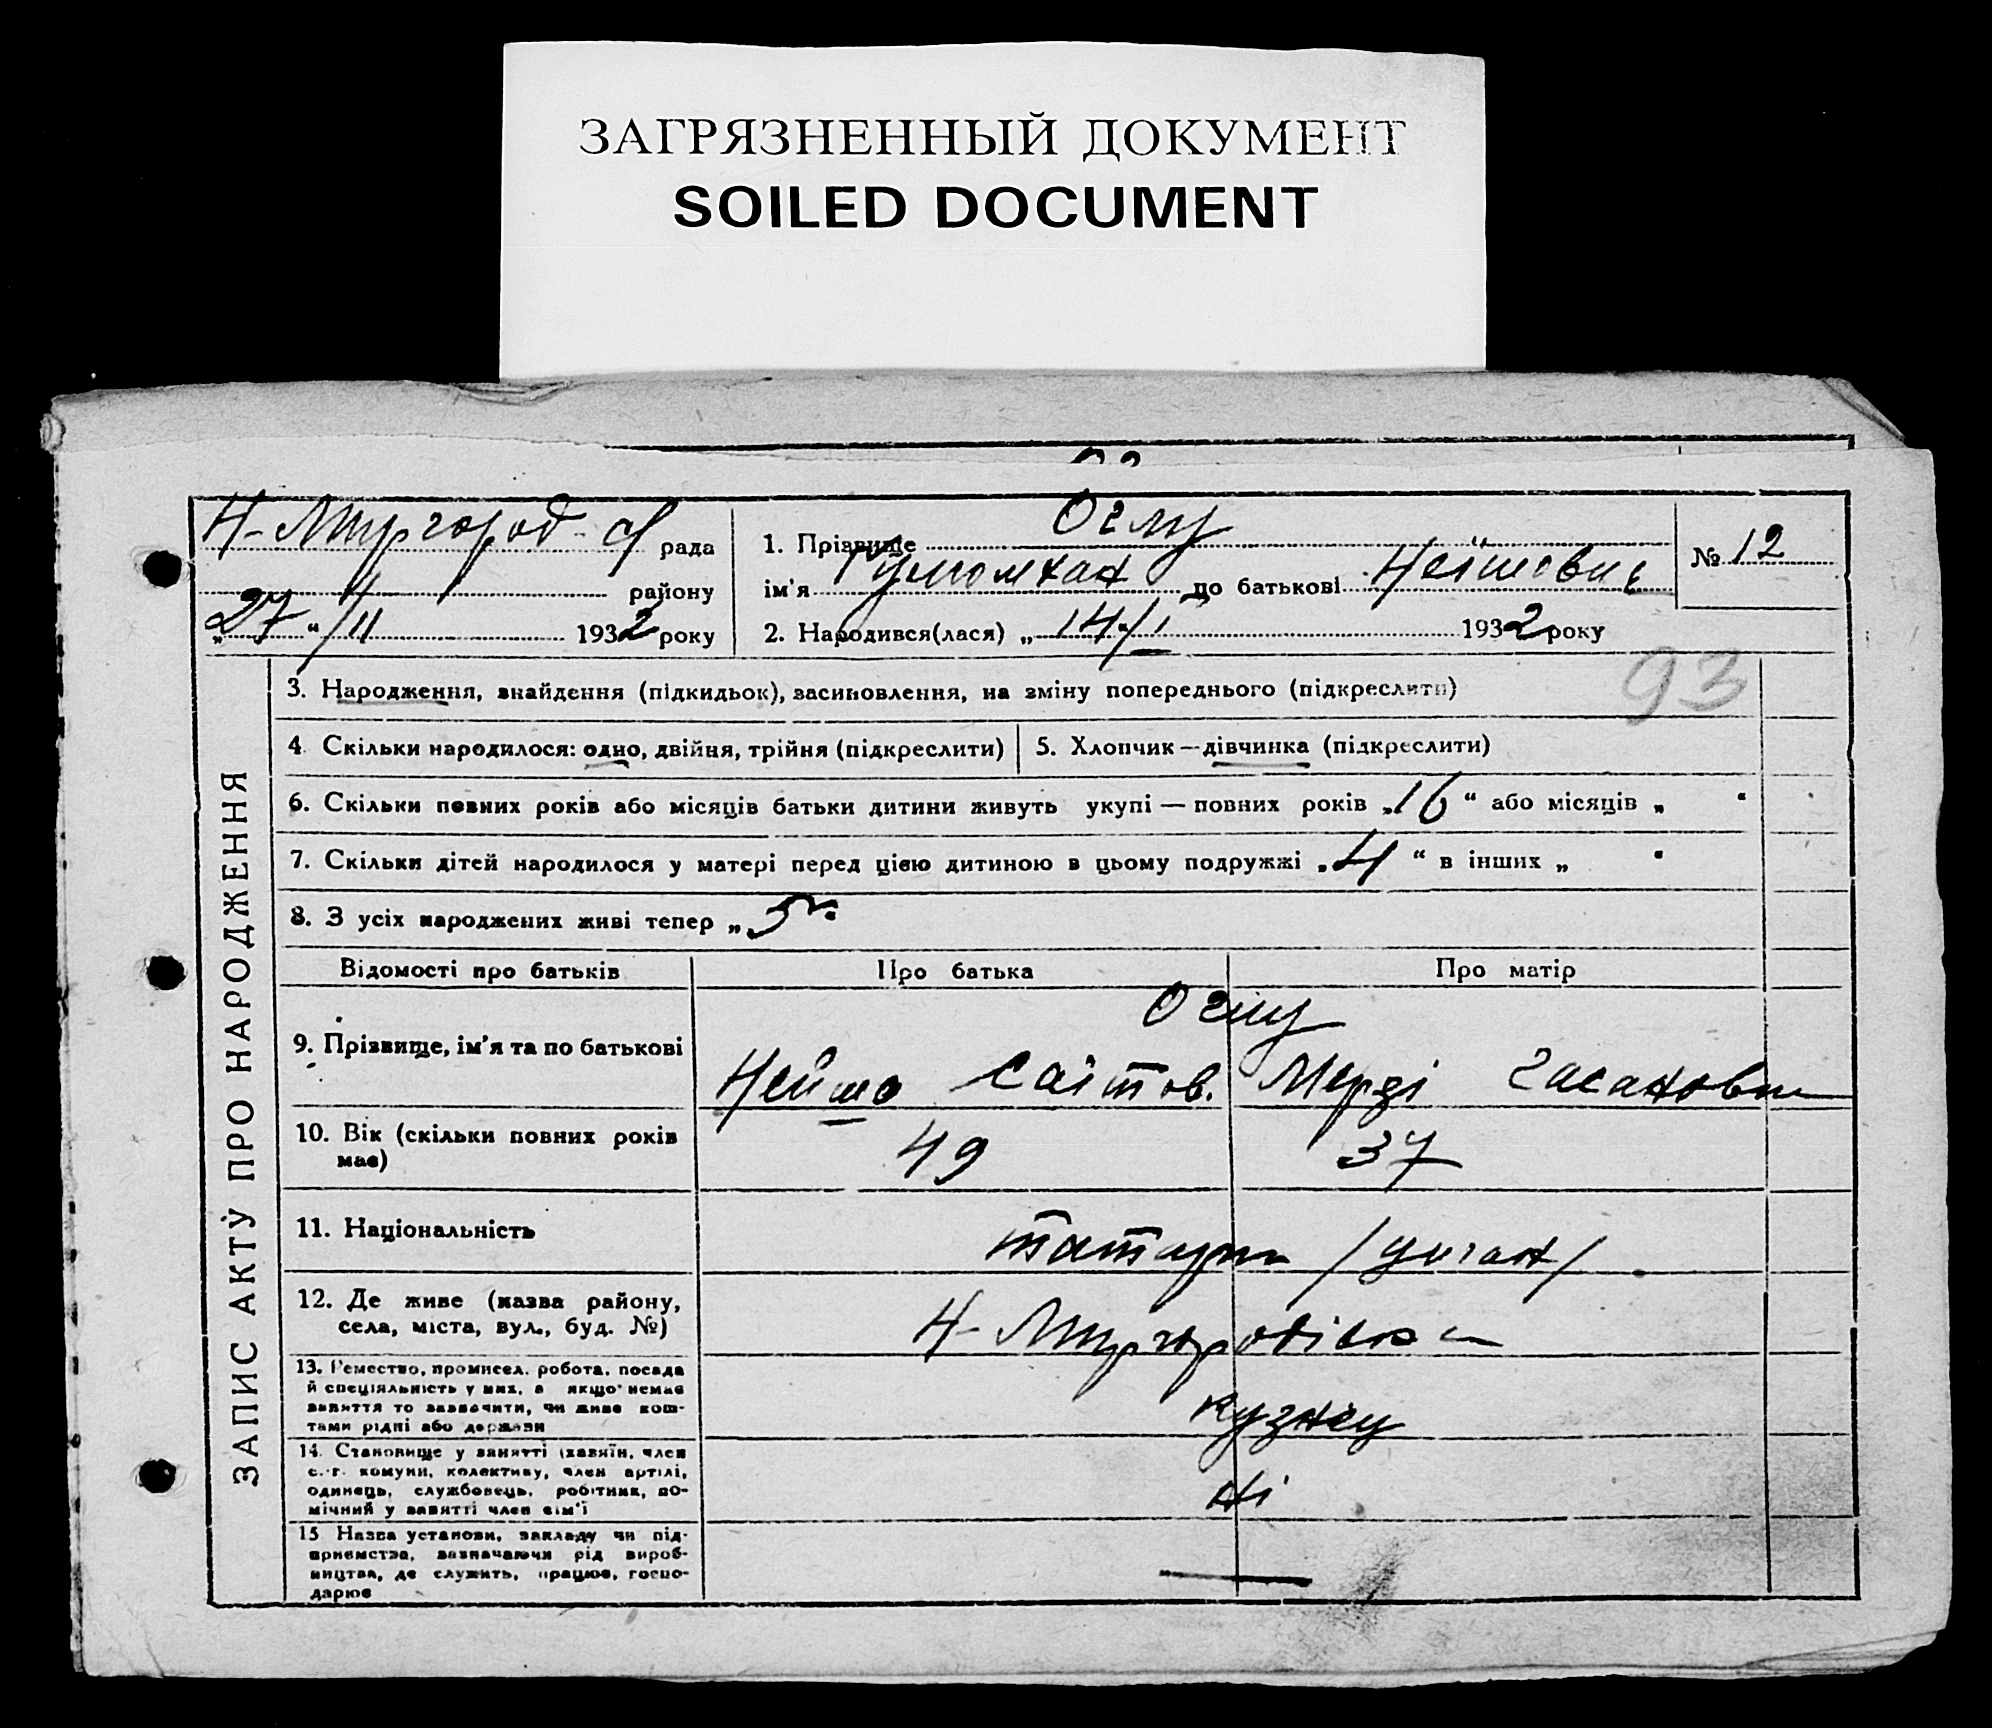 ЗАГРЯЗНЕННЫЙ ДОКУМЕНТ
SOILED DOCUMENT
Н-Миргород рада
району
„27“/II 1932 року
1. Прізвище Оглу
ім'я по батькові
2. Народився(лася) „14“/I 1932 року
№ 12
93
ЗАПИС АКТУ ПРО НАРОДЖЕННЯ
3. Народження, знайдення (підкидьок), засиновлення, на зміну попереднього (підкреслити)
4. Скільки народилося: одно, двійня, трійня (підкреслити)
5. Хлопчик — дівчинка (підкреслити)
6. Скільки повних років або місяців батьки дитини живуть укупі — повних років „16“ або місяців „ “
7. Скільки дітей народилося у матері перед цією дитиною в цьому подружжі „4“ в інших „ “
8. З усіх народжених живі тепер „5“
Відомості про батьків
Про батька
Про матір
Оглу
9. Прізвище, ім'я та по батькові
Нейшо Саітов. Мерзі Гасановн
10. Вік (скільки повних років має)
49
37
11. Національність
татари /циган/
12. Де живе (назва району,
села, міста, вул., буд. №)
Н-Миргородівка
13. Ремество, промисел. робота, посада
й спеціяльність у них, а якщо немає
заняття то зазначити, чи живе кош-
тами рідні або держави
кузнец
14. Становище у занятті (хазяїн, член
с.-г. комуни, колективу, член артілі,
одинець, службовець, робітник, по-
мічний у занятті член сім'ї
ні
15 Назва установи, закладу чи під-
приємства, зазначаючи рід вироб-
ництва, де служить, працює, госпо-
дарює
—